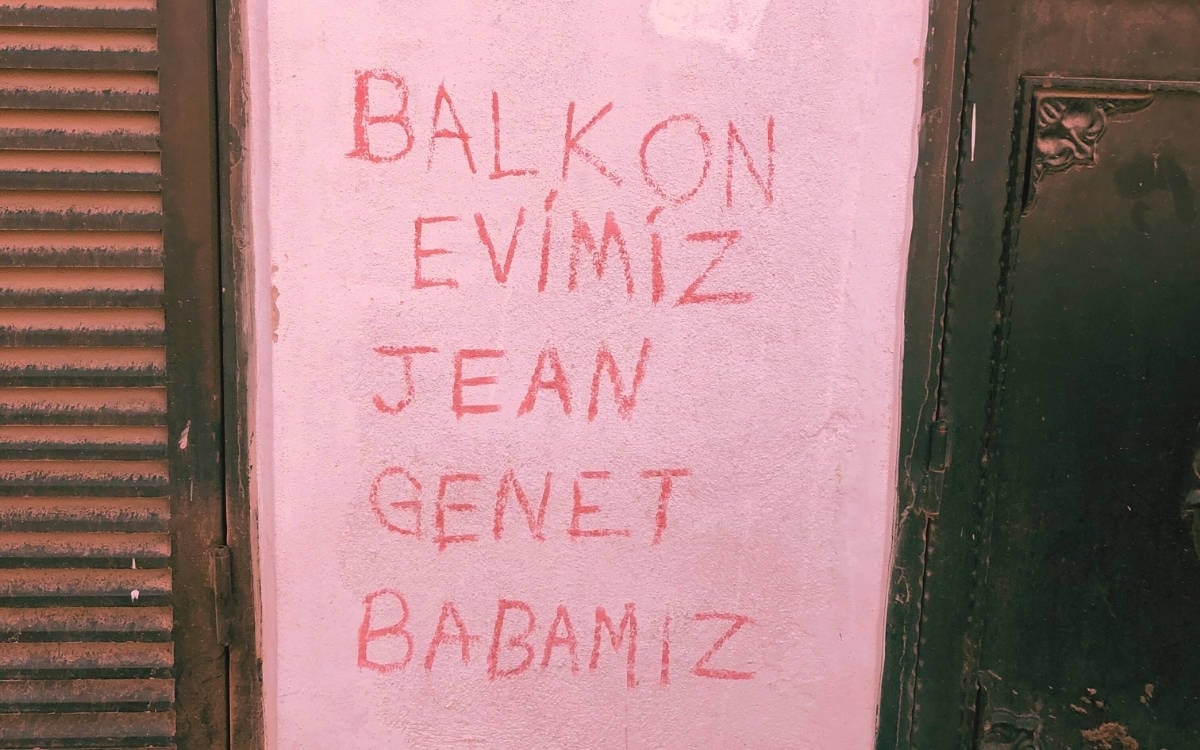 BALKON
EVİMİZ
JEAN
GENET
BABAMIZ